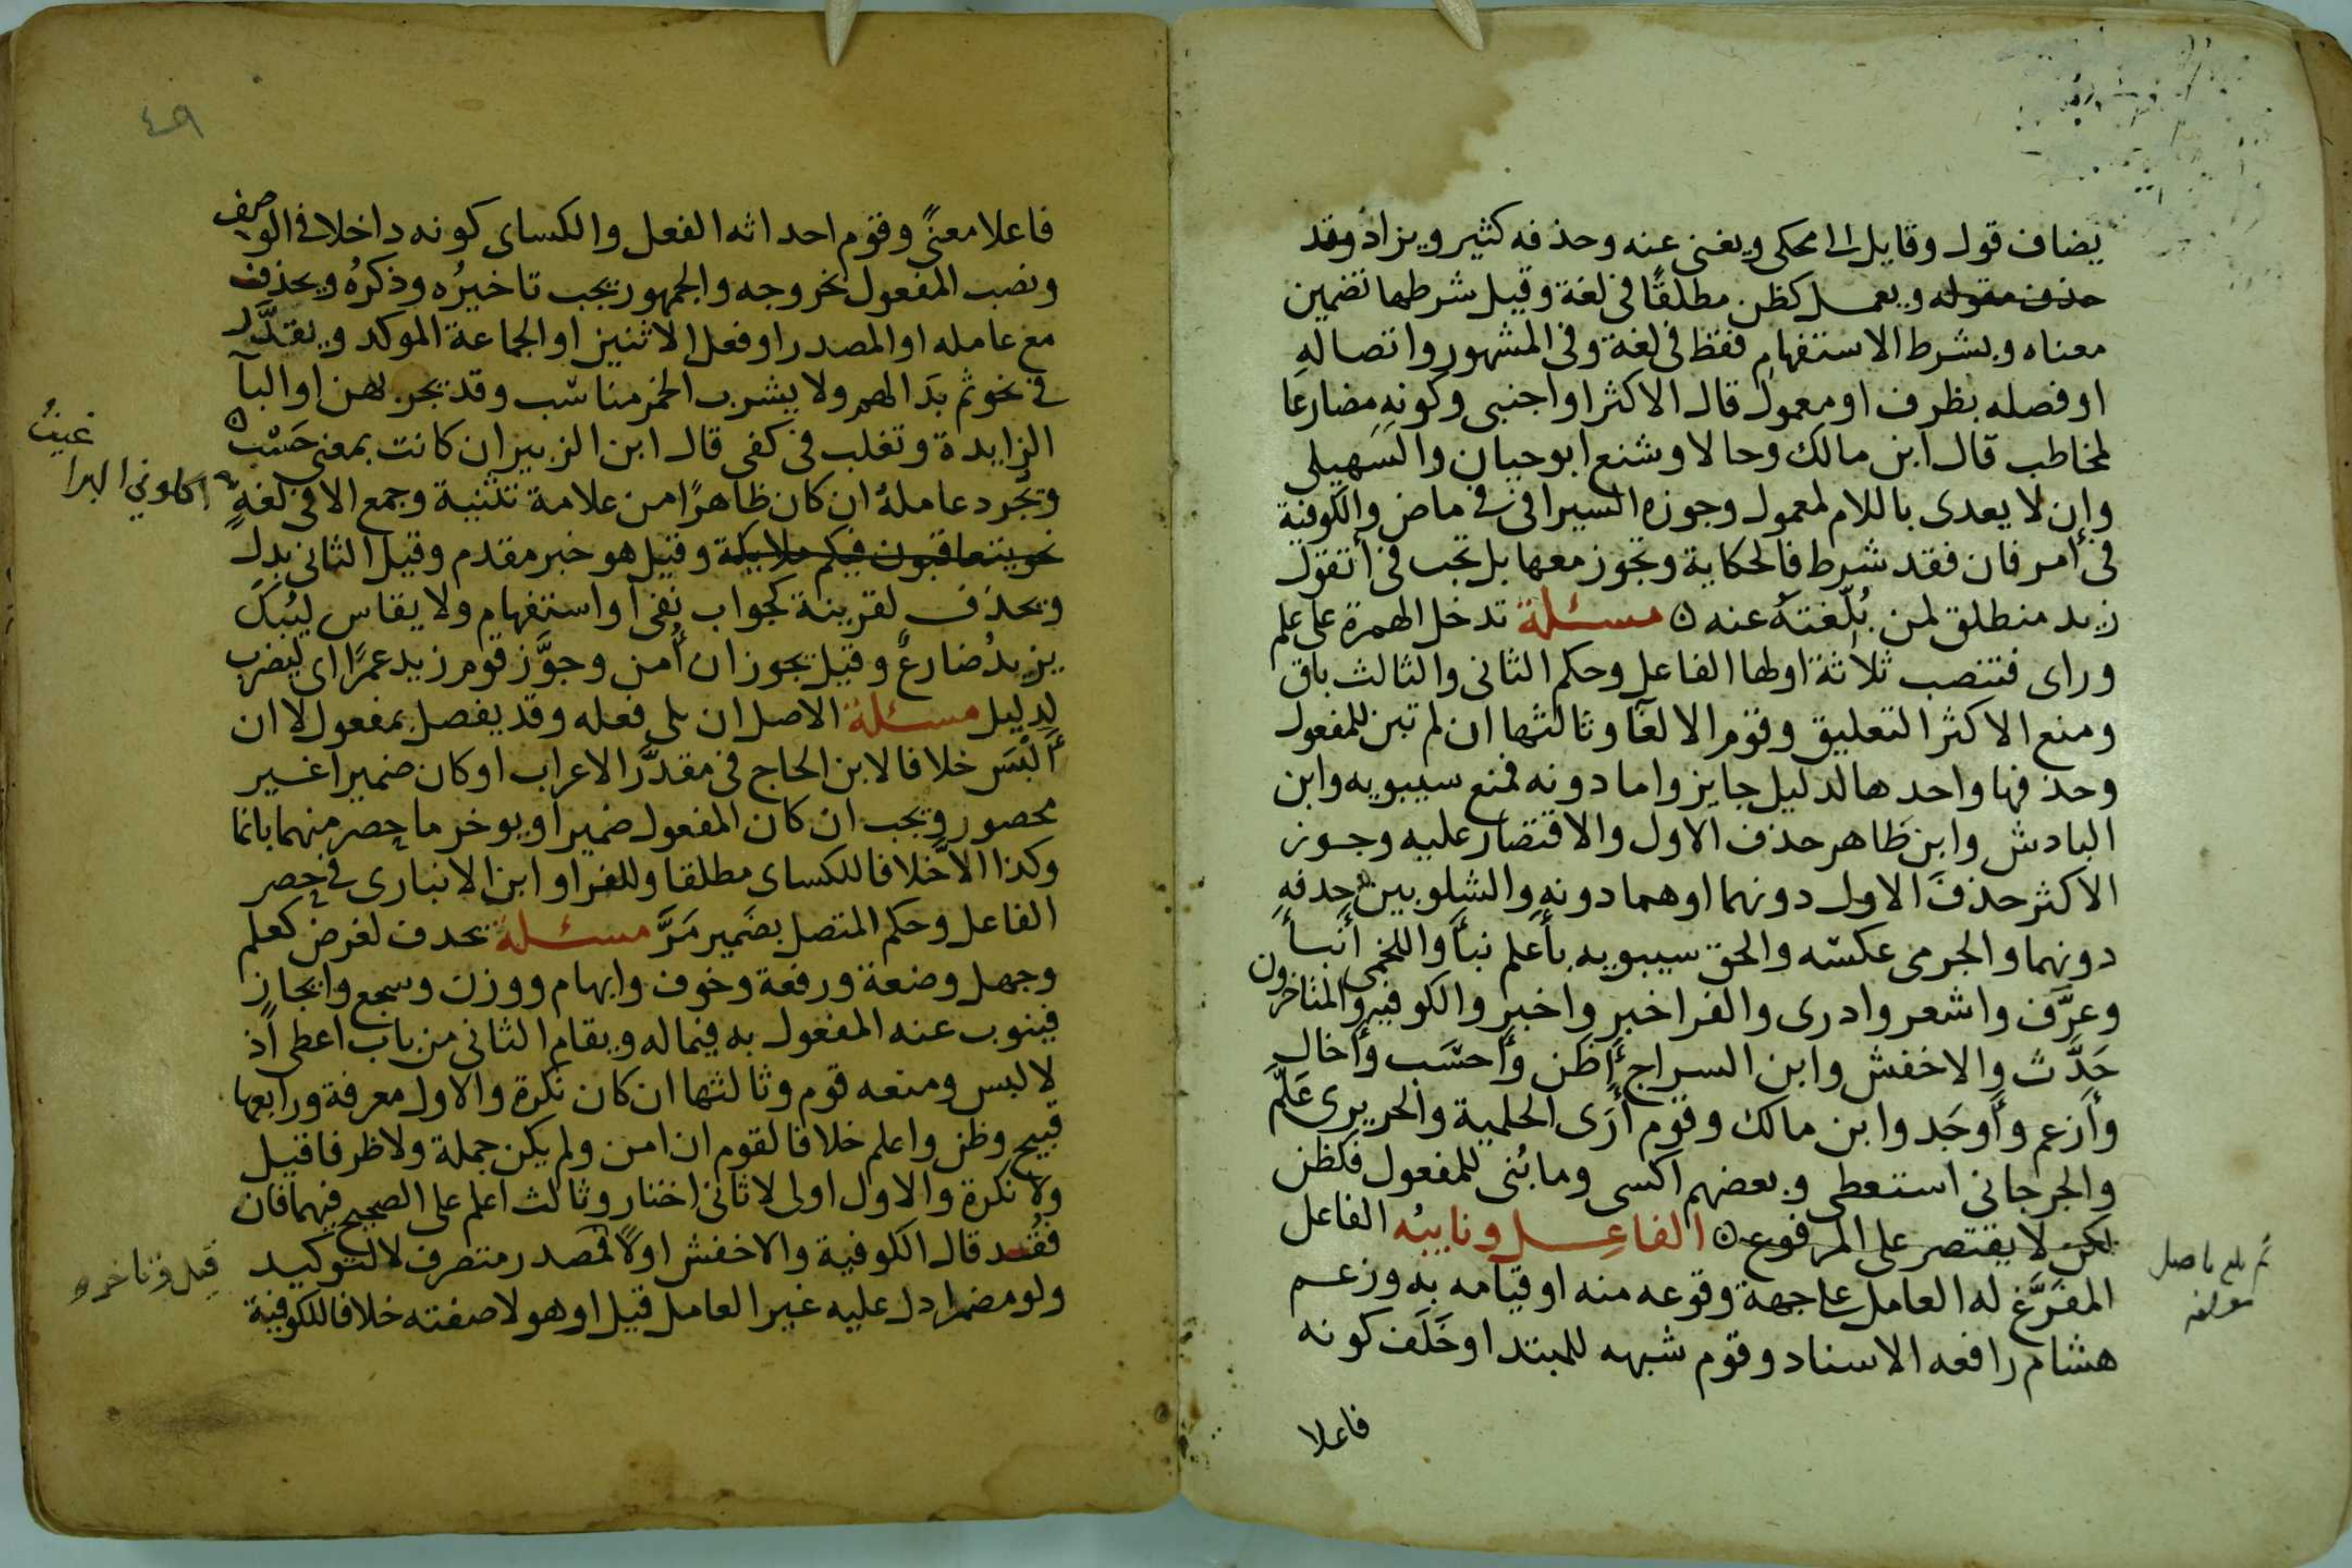 يضاف قول وقايل الا محكى ويغنى عنه وحذفه كثير ويزاد وقد
حذف مقوله ويعمل كظن مطلقًا فى لغة وقيل شرطها تضمين
معناه وبشرط الاستفهام فقط فى لغة وفى المشهور واتصاله
او فصله بظرف او معمول قال الاكثر او اجنبى وكونه مضارعا
لمخاطب قال ابن مالك وحالا وشنع ابو حيان والسهيلى
وإن لا يعدى باللام لمعمول وجوزه السيرافى فى ماض والكوفية
فى امر فان فقد شرط فالحكاية وتجوز معها بل تجب فى أتقول
زيد منطلق لمن بُلّغتَه عنه ه مسئلة تدخل الهمزة على علم
وراى فتنصب ثلاثة اولها الفاعل وحكم الثانى والثالث باق
ومنع الاكثر التعليق وقوم الالغآ وثالثها ان لم تبن للمفعول
وحذفها واحدها لدليل جايز واما دونه فمنع سيبويه وابن
البادش وابن طاهر حذف الاول والاقتصار عليه وجوز
الاكثر حذفَ الاول دونهما اوهما دونه والشلوبين حذفه
دونهما والجرمى عكسه والحق سيبويه بأعلم نبأ واللخمى أنبأ
وعرَّف واشعر وادرى والفرا خبر واخبر والكوفيه والمتاخرون
حَدَّث والاخفش وابن السراج أظن وأحسَب وأخال
وأزعم وأوجَد وابن مالك وقوم أرَى الحلمية والحريرى عَلَّم
والجرجانى استعطى وبعضهم اكسى وما بُنى للمفعول فكظن
لكن لا يقتصر على المرفوع ه الفاعل ونايبُه الفاعل
المفَرَّغ له العامل على جهة وقوعه منه او قيامه به وزعم
هشام رافعه الاسناد وقوم شبهه للمبتدا وخَلَف كونه
فاعلا
ثم بلغ
٤٩
فاعلا معنىً وقوم احداثه الفعل والكساى كونه داخلا فى الوصف
ونصب المفعول بخروجه والجمهور يجب تاخيرُه وذكرُه ويحذف
مع عامله او المصدر او فعل الاثنين او الجماعة الموكد ويقدَّر
فى نحو ثم بدَا لهم ولا يشرب الخمر مناسب وقد يجر بمن او البآ
الزايدة وتغلب فى كفى قال ابن الزبير ان كانت بمعنى حَسْب
وتجُرد عاملهُ ان كان ظاهرًا من علامة تثنية وجمع الا فى لغةٍ
نحو يتعاقبون فيكم ملايكة وقيل هو خبر مقدم وقيل الثانى بدل
ويحذف لقرينة كجواب نفى او استفهام ولا يقاس ليُبكَ
يزيدُ ضارعٌ وقيل يجوز ان أُمن وجوَّز قوم زيد عمرًا اى ليضرب
لدليل مسئلة الاصل ان يلى فعله وقد يفصل بمفعول لا ان
ألبَسَ خلافا لابن الحاج فى مقدَّر الاعراب او كان ضميرا غير
محصور ويجب ان كان المفعول ضميرا ويوخر ما حصر منهما بانما
وكذا الا خلافا للكساى مطلقا وللفرا وابن الانبارى فى حصر
الفاعل وحكم المتصل بضَمير مَرَّ مسئلة يحذف لغرض كعلم
وجهل وضعة ورفعة وخوف وابهام ووزن وسجع وايجاز
فينوب عنه المفعول به فيما له ويقام الثانى من باب اعطى اذ
لا لبس ومنعه قوم وثالثها ان كان نكرة والاول معرفة ورابعها
قبيح وظن واعلم خلافا لقوم ان امن ولم يكن جملة ولا ظرفا قيل
ولا نكرة والاول اولى لا ثانى اختار وثالث اعلم على الصحيح فيهما فان
فُقد قال الكوفية والاخفش اولاً فمصدر متصرف لا لتوكيد
ولو مضمرا دل عليه غير العامل قيل او هو لا صفته خلافا للكوفية